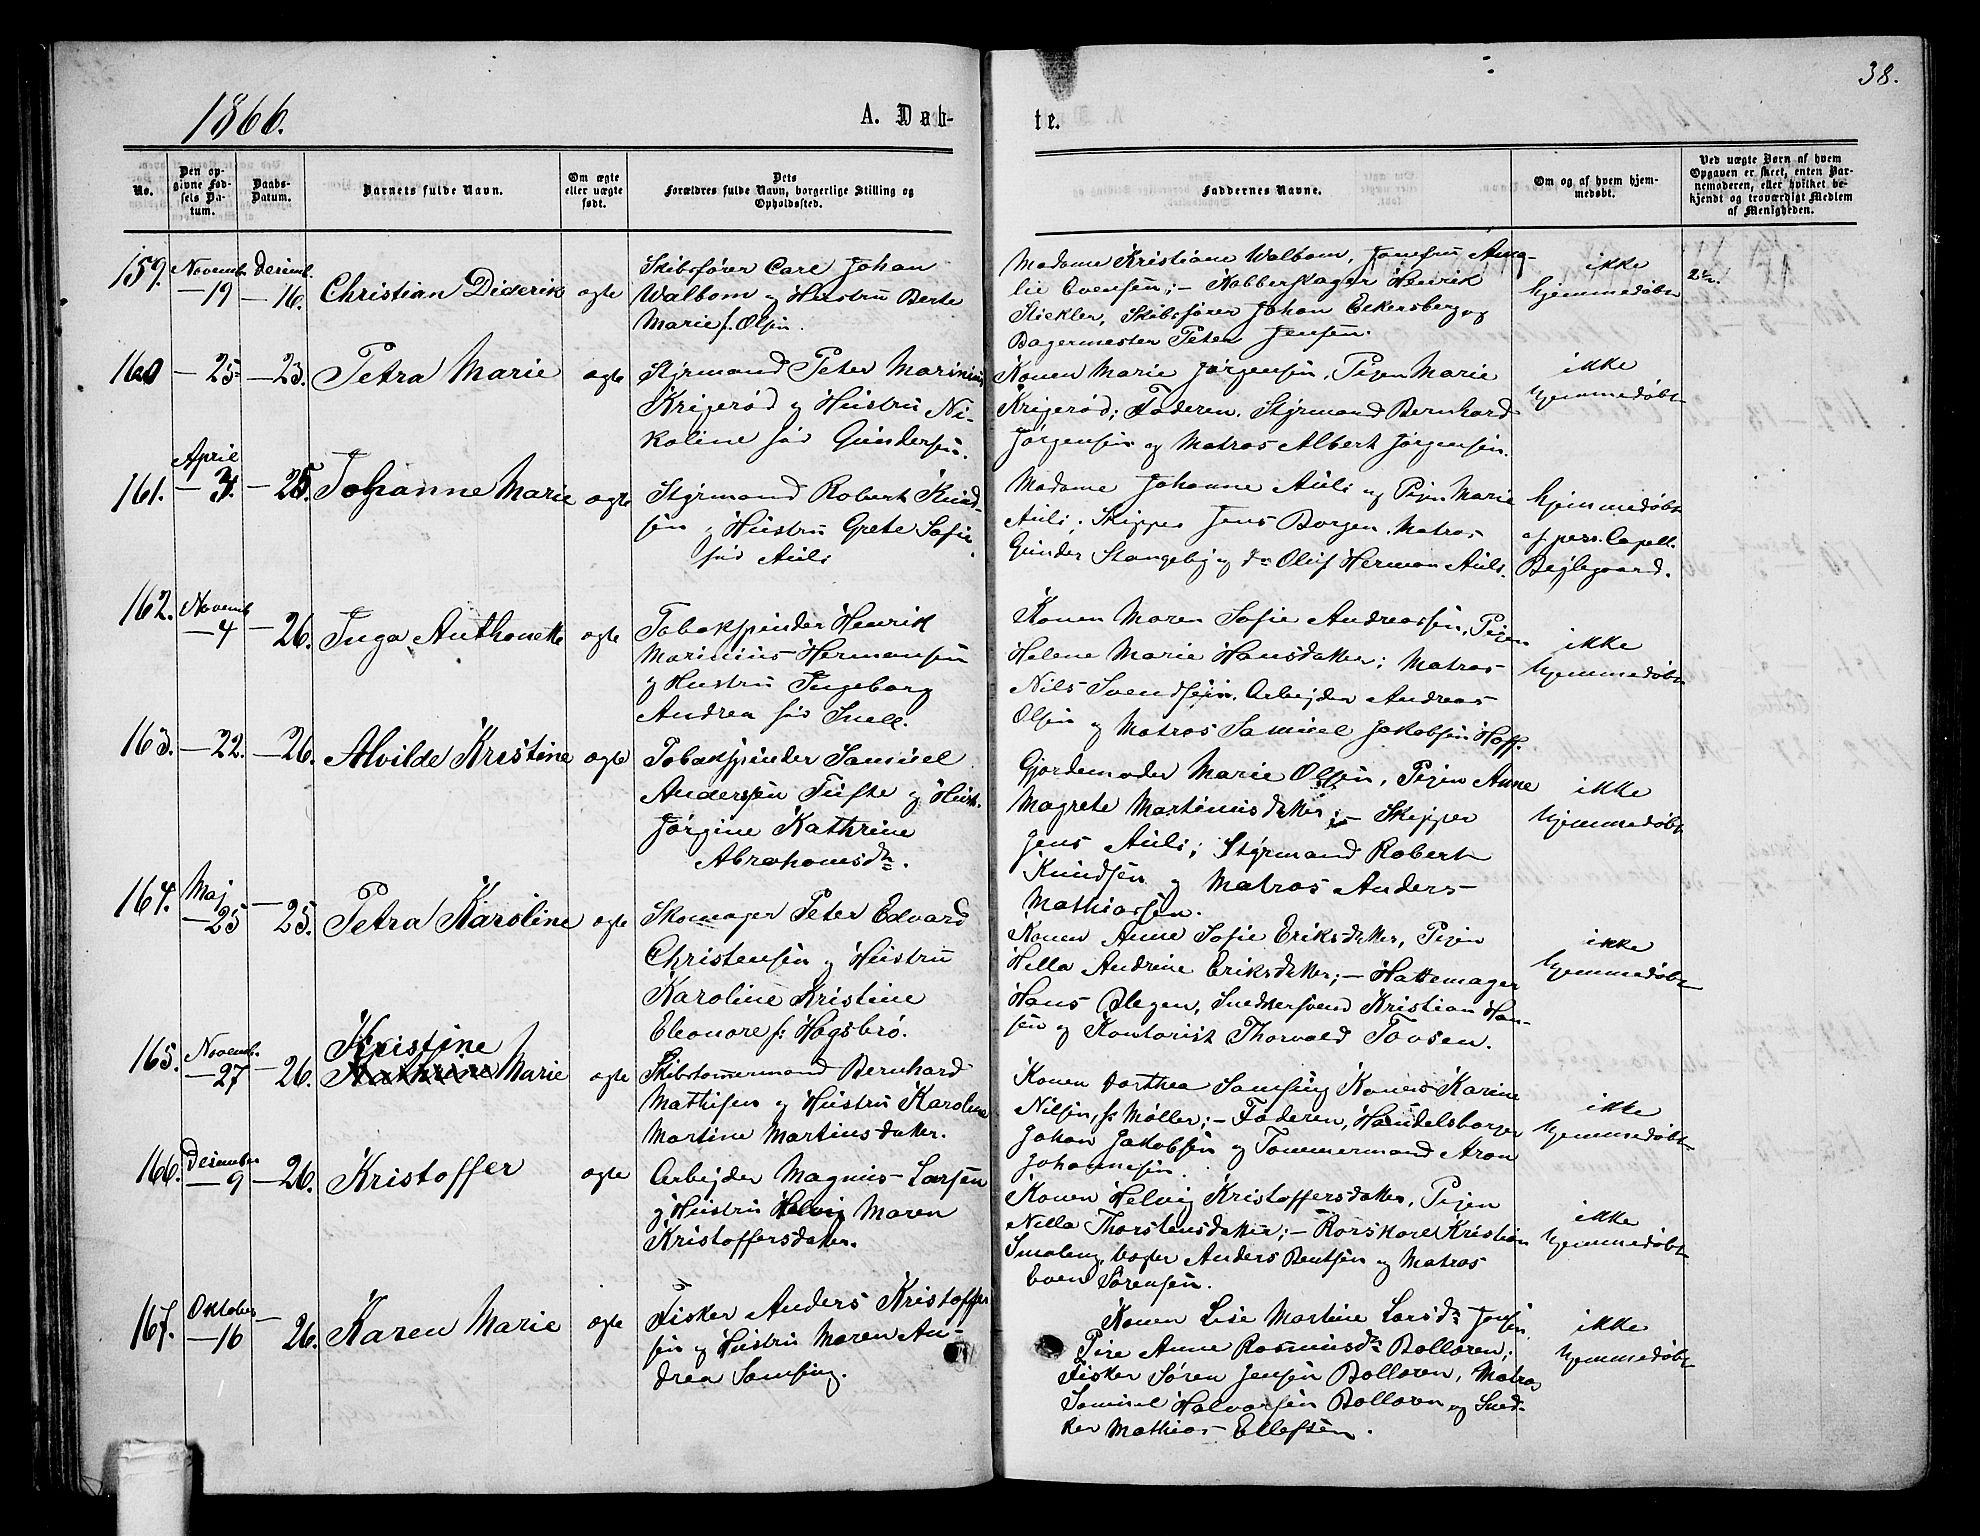 38.
1866.
A. Døb-
te.
No.
Den op-
givne Fød-
sels Da-
tum.
Daabs-
Datum.
Barnets fulde Navn.
Om ægte
eller uægte
født.
Dets
Forældres fulde Navn, borgerlige Stilling og
Opholdssted.
Faddernes Navne.
Om og af hvem hjem-
medøbt.
Ved uægte Børn af hvem
Opgaven er skeet, enten Bar-
nemoderen, eller hvilket be-
kjendt og troværdigt Medlem
af Menigheden.
159.
Novemb.
— 19
Desemb.
— 16.
Christian Diderik
ægte
Skibsfører Carl Johan
Walbom og Hustru Berte
Marie f. Olsen.
Madame Kristiane Walbom, Jomfru Ama-
lie Evensen; — Kobberslager Henrik
Stickler, Skibsfører Johan Eckersberg og
Bagermester Peter Jensen.
ikke
hjemmedøbt
160
— 25
— 23.
Petra Marie
ægte
Styrmand Peter Marinius
Krigerød og Hustru Ni-
koline før Gundersen.
Konen Marie Jørgensen, Pigen Marie
Krigerød; Faderen, Styrmand Bernhard
Jørgensen og Matros Albert Jørgensen.
ikke
hjemmedøbt
161.
April
— 3.
— 25
Johanne Marie
ægte
Styrmand Robert Knud-
sen og Hustru Grete Sofie
før Auli
Madame Johanne Auli og Pigen Marie
Auli; Skipper Jens Borgen, Matros
Gunder Stangeby og do Oluf Herman Auli.
hjemmedøbt
af pers. Capell.
Bejlegaard.
162.
Novemb
— 4
— 26.
Inga Anthonette
ægte
Tobakspinder Henrik
Marinius Hermansen
og Hustru Ingeborg
Andrea før Snell.
Konen Maren Sofie Andreassen, Pigen
Helene Marie Hansdatter; Matros
Nils Svendsen, Arbejder Andreas
Olsen og Matros Samuel Jakobsen Hoff.
ikke
hjemmedøbt
163.
— 22.
— 26.
Alvilde Kristine
ægte
Tobakspinder Samuel
Andersen Tufte og Hust.
Jørgine Kathrine
Abrahamsdr.
Gjordemoder Marie Olsen, Pigen Anne
Magrete Martinusdatter; — Skipper
Jens Auli; Styrmand Robert
Knudsen og Matros Anders
Mathiassen.
ikke
hjemmedøbt
164.
Maj
— 25
— 25.
Petra Karoline
ægte
Skomager Peter Edvard
Christensen og Hustru
Karoline Kristine
Eleonore f. Høgsbro.
Konen Anne Sofie Eriksdatter, Pigen
Hella Andrine Eriksdatter; — Hattemager
Hans Olegen, Snedkersvend Kristian Han-
sen og Kontorist Thorvald Tovsen.
ikke
hjemmedøbt
165.
Novemb.
— 27
— 26.
Kristine
Kathrine Marie
ægte
Skibstømmermand Bernhard
Mathisen og Hustru Karoline
Martine Martinusdatter.
Konen Dorthea Samsing Konen Karine
Nilsen, f. Møller; — Faderen, Handelsborger
Johan Jakobsen og Tømmermand Aron
Johannesen.
ikke
hjemmedøbt
166.
Desember
— 9
— 26.
Kristoffer
ægte
Arbejder Magnus Larsen
og Hustru Helvig Maren
Kristoffersdatter.
Konen Helvig Kristoffersdatter, Pigen
Nilla Thorstensdatter; — Rorskarl Kristian
Smaleng, Anders Bentsen og Matros
Even Sørensen.
ikke
hjemmedøbt
167.
Oktober
— 16
— 26.
Karen Marie
ægte
Fisker Anders Kristoffer
sen og Hustru Maren An-
drea Samsing.
Konen Lise Martine Larsdr Jensen,
Pige Anne Rasmusdr Bolleren;
Fisker Søren Jensen Bolleren, Matros
Samuel Halvorsen Bolleren og Sned-
ker Mathias Ellefsen.
ikke
hjemmedøbt